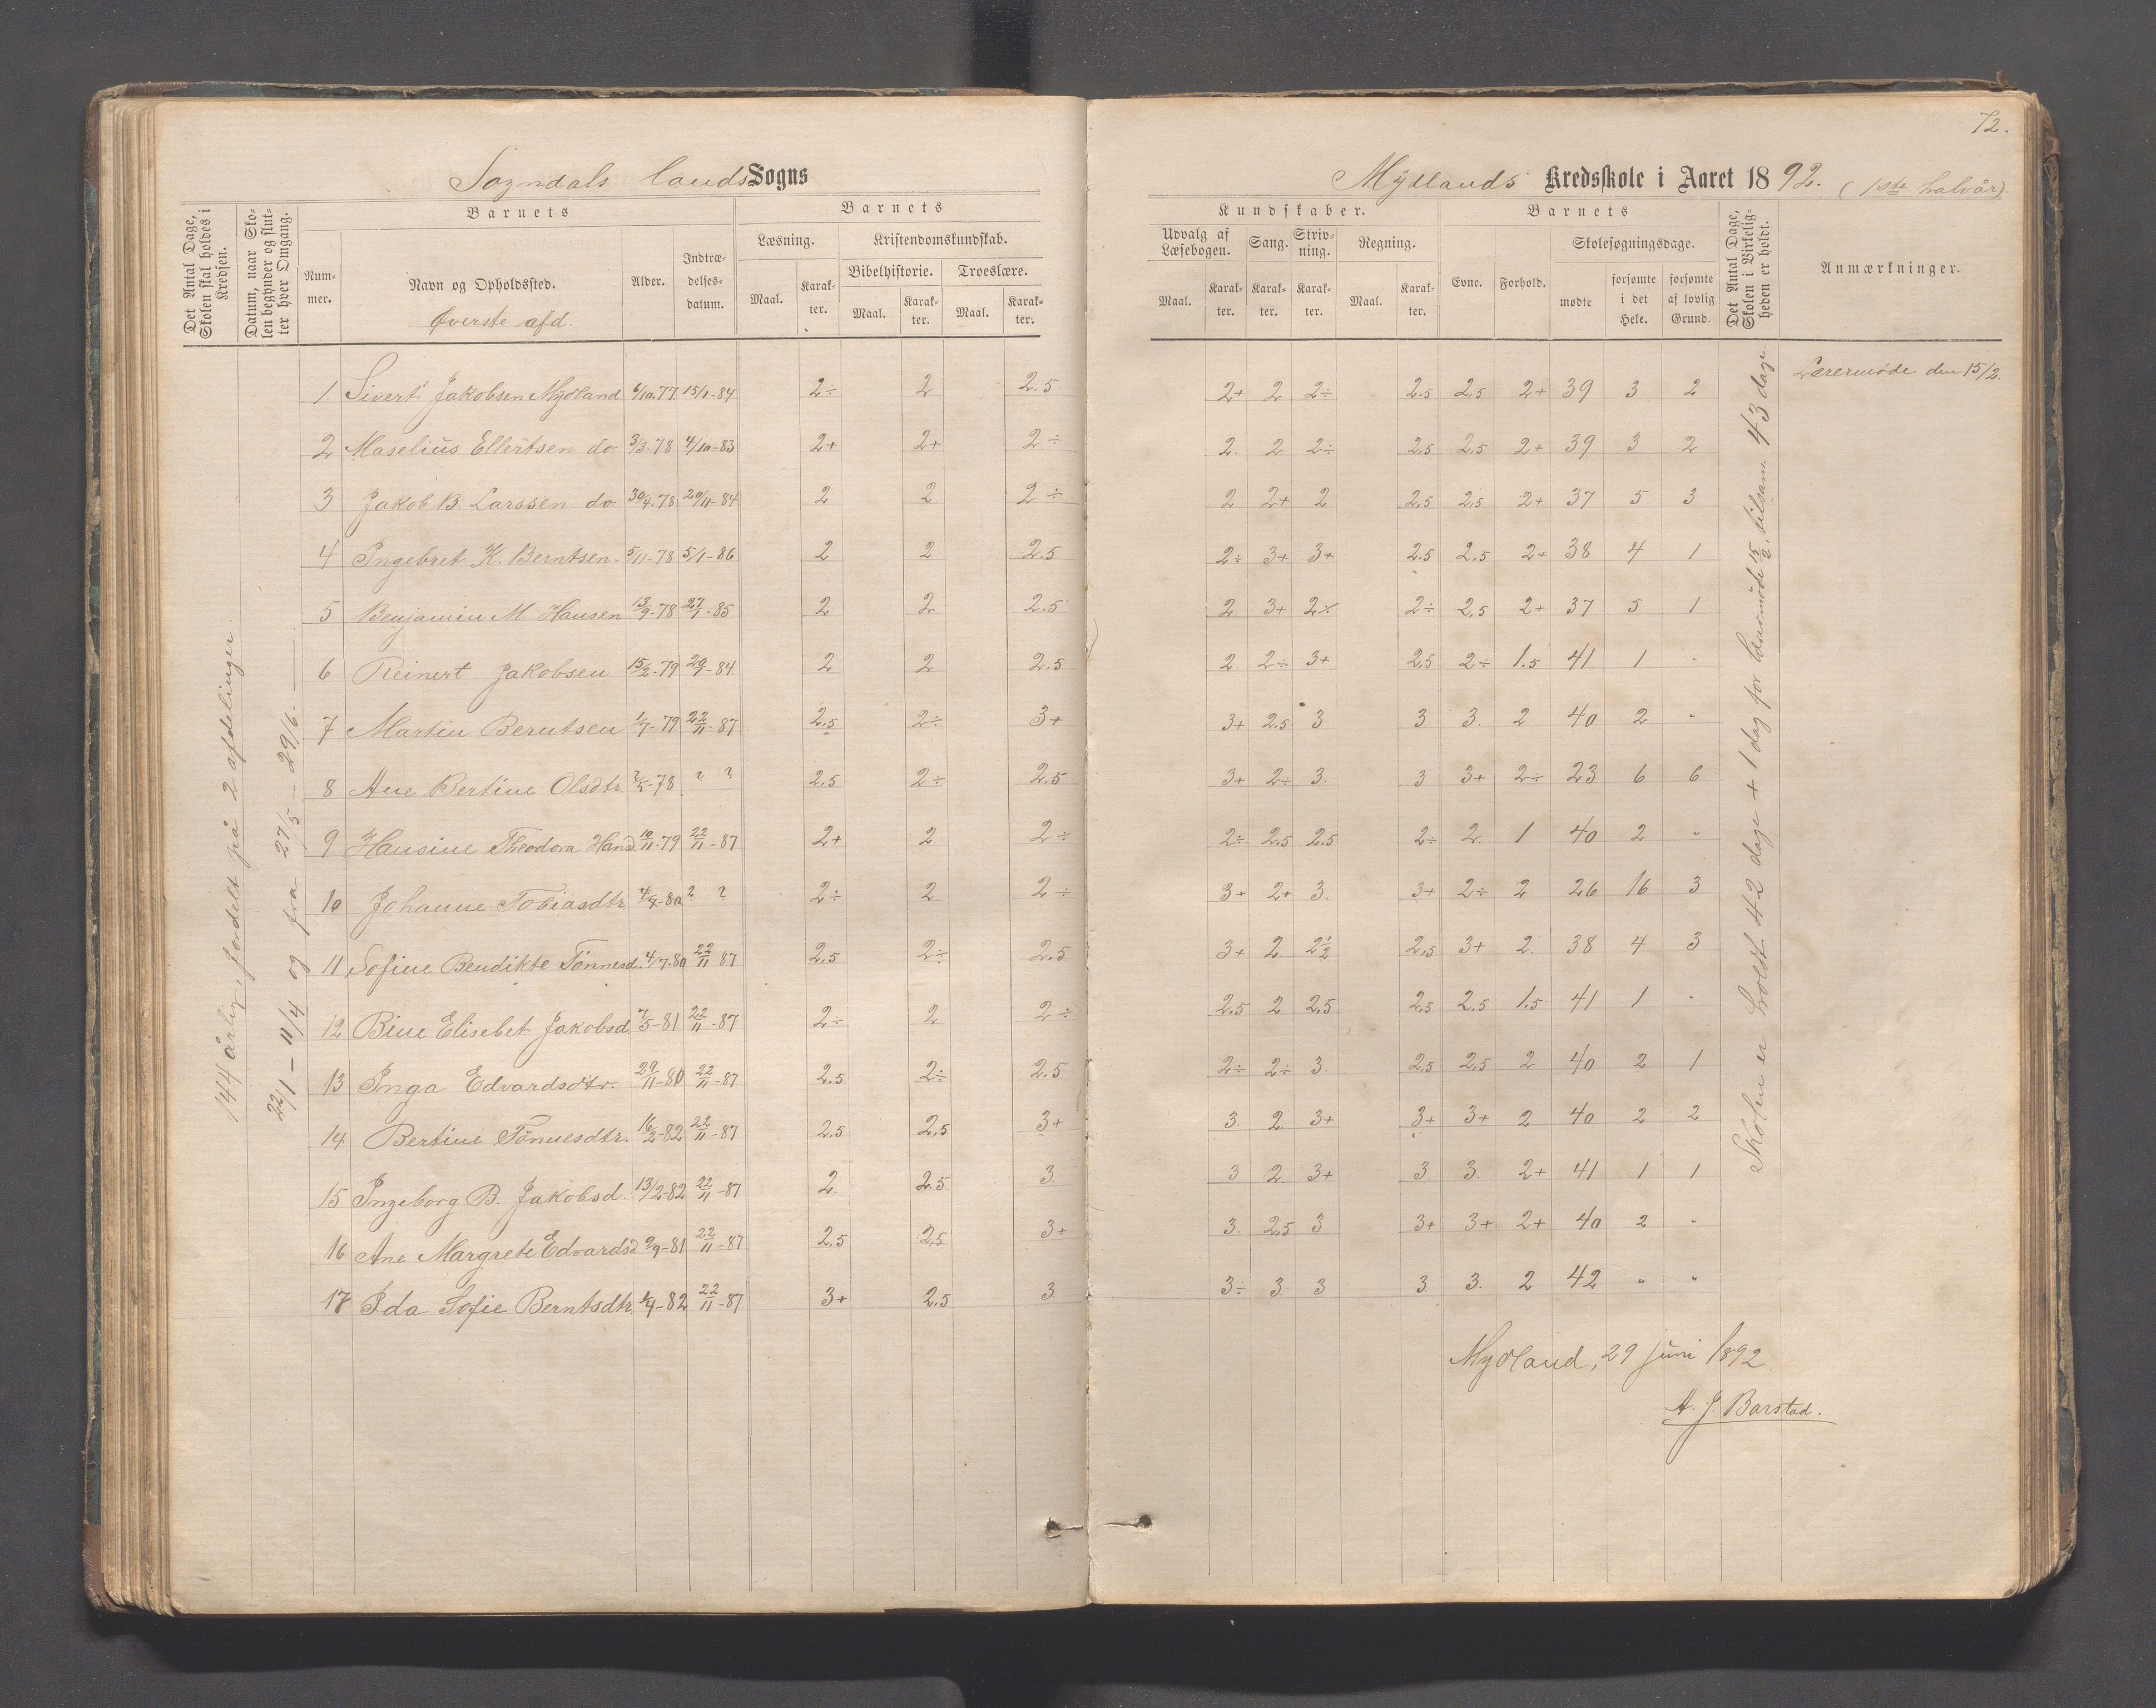 72.
Sogndals lands Sogns
Mydlands Kredsskole i Aaret 1892. (1ste halvår)
Det Antal Dage, Skolen skal holdes i Kredsen.
Datum, naar Skolen begynder og slutter hver Omgang.
Barnets
Nummer.
Navn og Opholdssted.
Øverste afd.
Alder.
Indtrædelsesdatum.
Barnets
Læsning.
Kristendomskundskab.
Bibelhistorie.
Troeslære.
Maal. Karakter. Maal. Karakter. Maal. Karakter.
Kundskaber.
Udvalg af Læsebogen. Sang. Skrivning. Regning.
Maal. Karakter. Karakter. Karakter. Maal. Karakter.
Barnets
Evne. Forhold.
Skolesøgningsdage.
mødte forsømte i det Hele. forsømte af lovlig Grund.
Det Antal Dage, Skolen i Virkeligheden er holdt.
Anmærkninger.
144 årlig, fordelt på 2 afdelinger.
22/1 – 11/4 og fra 27/5 – 29/6.
1. Sivert Jakobsen Mydland 6/10.77. 15/1-84 2÷ 2 2.5 2+ 2 2÷ 2.5 2,5 2+ 39 3 2 Lærermøde den 15/2.
2 Maselius Ellertsen do 3/3-78 4/10-83 2+ 2+ 2÷ 2. 2 2÷ 2,5 2,5 2+ 39 3 2
3 Jakob B. Larssen do 30/4.78 29/11-84 2 2 2÷ 2 2+ 2 2,5 2,5 2+ 37 5 3
4 Ingebret K. Berntsen 5/11-78 5/1-86 2 2 2.5 2÷ 3+ 3+ 2.5 2,5 2+ 38 4 1
5 Benjamin M. Hansen 13/9-78 27/1-85 2 2 2.5 2 3+ 2÷ 2÷ 2,5 2+ 37 5 1
6 Reinert Jakobsen 15/2-79 29/9-84 2 2 2.5 2. 2÷ 3+ 2,5 2÷ 1.5 41 1 "
7 Martin Berntsen 1/7-79 22/11-87 2,5 2÷ 3+ 3+ 2.5 3 3 3. 2 40 2 "
8 Ane Bertine Olsdtr. ?/5-78 ? ? 2.5 2÷ 2.5 3+ 2÷ 3. 3 3+ 2÷ 23 6 6
9 Hansine Theodora Hansd. 10/11-79 22/11-87 2+ 2 2÷ 2÷ 2,5 2,5 2÷ 2. 1 40 2 "
10 Johanne Tobiasdtr. 4/4-80 ? ? 2÷ 2. 2÷ 3+ 2+ 3. 3+ 2÷ 2 26 16 3
11 Sofine Bendikte Tönnesd. 4/7-80 22/11 87 2,5 2÷ 2.5 3+ 2 2½ 2,5 3+ 2. 38 4 3
12 Bine Elisebet Jakobsd. 7/5-81 22/11-87 2÷ 2 2÷ 2,5 2 2,5 2,5 2.5 1,5 41 1 "
13 Inga Edvardsdtr. 29/11-80 22/11-87 2.5 2÷ 2.5 2÷ 2÷ 3. 2,5 2,5 2 40 2 1
14 Bertine Tönnesdtr. 16/2-82 22/11-87 2.5 2,5 3+ 3. 2 3+ 3+ 3+ 2 40 2 2
15 Ingeborg B. Jakobsd. 13/2-82 22/11-87 2. 2.5 3. 3 2 3+ 3 3. 2+ 41 1 1
16 Ane Margrete Edvardsd. 9/9-81 22/11-87 2.5 2,5 3+ 3. 2,5 3 3+ 3+ 2+ 40 2 "
17 Ida Sofie Berntsdtr. 1/4-82 22/11-87 3+ 2,5 3 3÷ 3. 3 3 3. 2 42 " "
Skolen er holdt 42 dage + 1 dag for lærermöde 15/2, tilsam. 43 dage.
Mydland, 29 juni 1892.
A. J. Barstad.